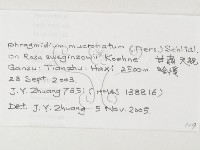 phragmidium mucronatum (Pers.) Schltdl.
on Rosa sweginzowii Koehne 甘肃 天祝
Gansu: Tianzhu: Haxi 2500m 哈溪
28 Sept. 2003
J. Y. Zhuang 7651 (HMAS 138816)
Det. J. Y. Zhuang 5 Nov. 2005